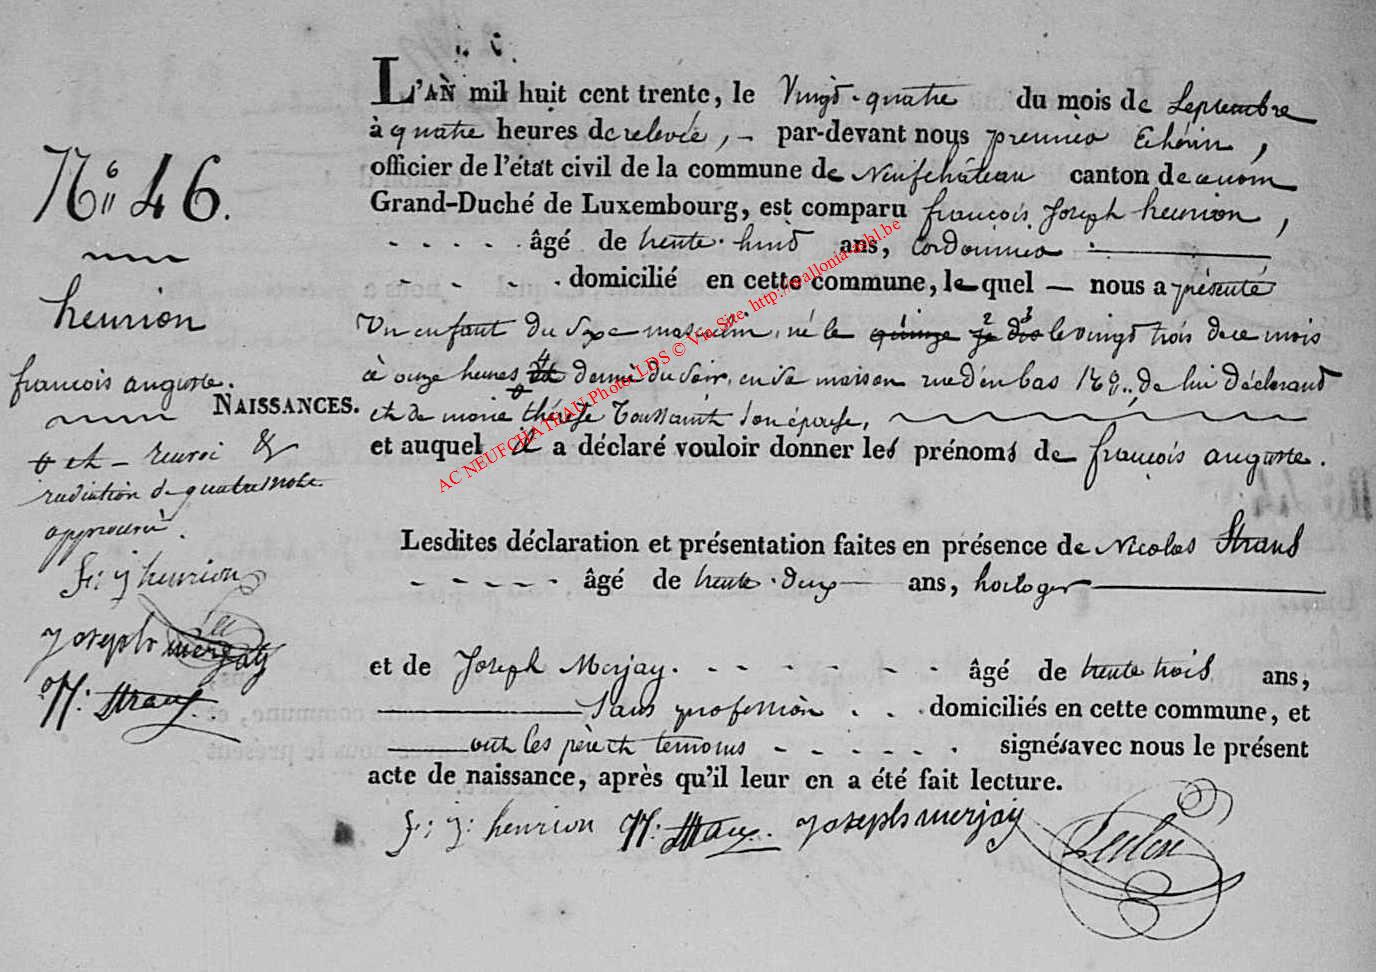 L'AN mil huit cent trente, le Vingt-quatre du mois de Septembre
à quatre heures de relevée, par-devant nous premier Echevin,
officier de l'état civil de la commune de Neufchâteau canton de ce nom
Grand-Duché de Luxembourg, est comparu françois Joseph henrion,
âgé de trente-huit ans, Cordonnier
domicilié en cette commune, le quel nous a présenté
Un enfant du Sexe masculin, né le quinze je dis le vingt trois de ce mois
à onze heures et demie du Soir, en Sa maison rue d'en bas de lui déclarant
et de marie thérèse Toussaint Son épouse,
et auquel il a déclaré vouloir donner les prénoms de françois auguste.
Lesdites déclaration et présentation faites en présence de Nicolas Straus
âgé de trente-deux ans, horloger
et de Joseph Merjay. âgé de trente trois ans,
Sans profession domiciliés en cette commune, et
ont les père et temoins signés avec nous le présent
acte de naissance, après qu'il leur en a été fait lecture.
f: j: henrion N: Straus. Joseph merjay
No 46.
henrion
françois auguste.
NAISSANCES.
et - renvoi &
radiation de quatre mots
approuvés.
f: j henrion
Joseph merjay
N: Straus
AC NEUFCHATEAU Photo LDS © Via Site http://wallonia-asbl.be